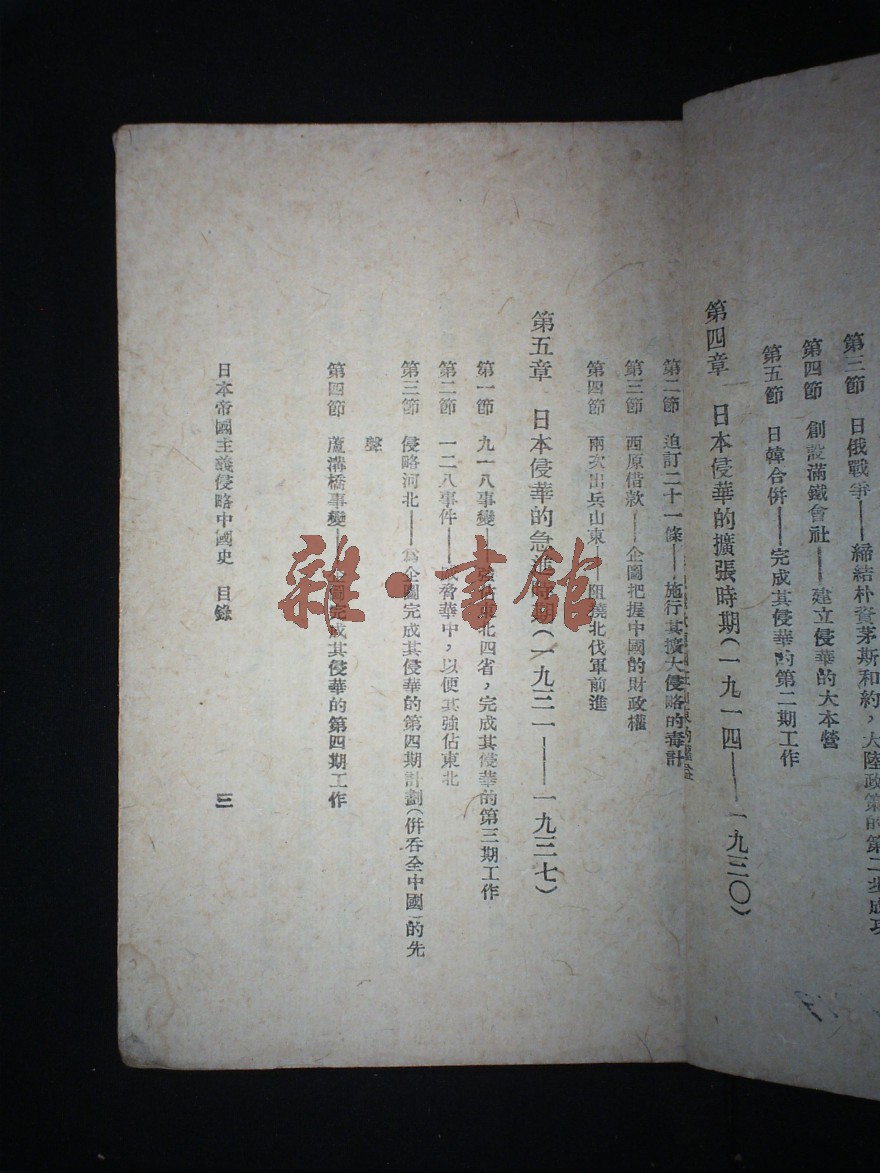 第三節　日俄戰爭——締結朴資茅斯和約，大陸政策的第二步成功
第四節　創設滿鐵會社——建立侵華的大本營
第五節　日韓合併——完成其侵華的第二期工作
第四章　日本侵華的擴張時期（一九一四——一九三〇）
第二節　迫訂二十一條——施行其擴大侵略的毒計
第三節　西原借款——企圖把握中國的財政權
第四節　兩次出兵山東——阻撓北伐軍前進
第五章　日本侵華的急進時期（一九三一——一九三七）
第一節　九一八事變——強佔東北四省，完成其侵華的第三期工作
第二節　一二八事件——脅華中，以便其強佔東北
第三節　侵略河北——為企圖完成其侵華的第四期計劃（併吞全中國）的先
聲
第四節　蘆溝橋事變——完成其侵華的第四期工作
日本帝國主義侵略中國史　目錄
三
雜·書館